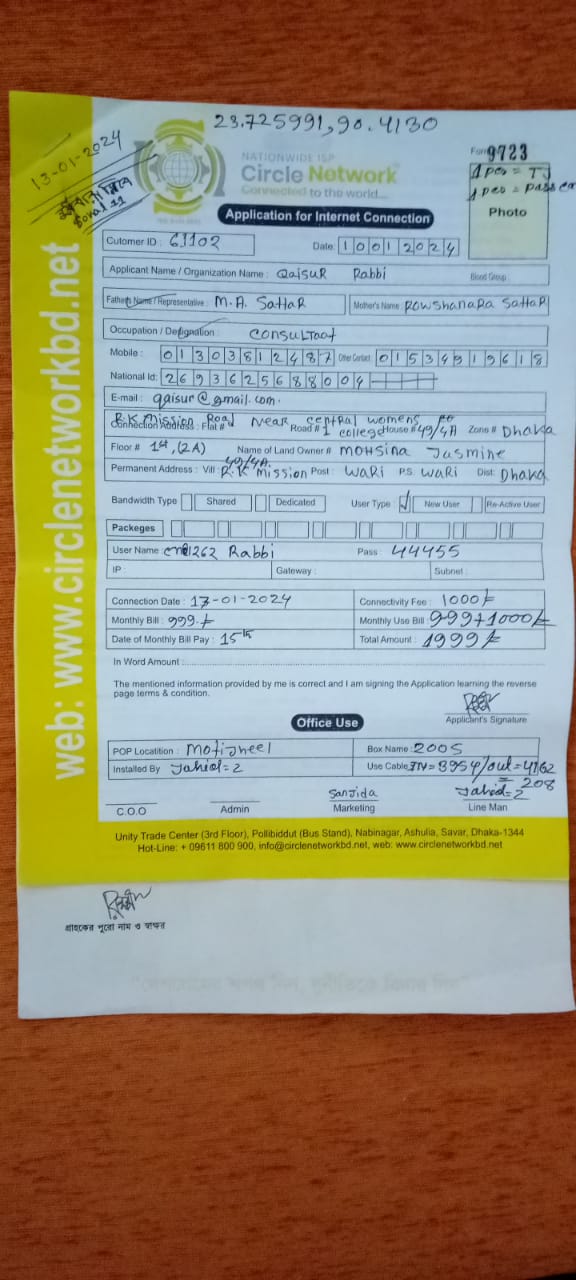 23.725991, 90.4130
13-01-2024
NATIONWIDE ISP
Circle Network
Connected to the world...
Form 9723
1 pcs = TJ
1 pcs =
Photo
Application for Internet Connection
Cutomer ID : 61102 Date: 10012024
Applicant Name / Organization Name : Qaisur Rabbi Blood Group :
Father's Name / Representative : M.A. Sattar Mother's Name : Rowshanara Sattar
Occupation / Designation : Consultant
Mobile : 01303812487 Other Contact : 01534919618
National Id: 2693625688004
E-mail : qaisur@gmail.com.
R.K Mission Road Near central womens
Connection Address : Flat # Road # 1 college House # 49/4A Zone # Dhaka
Floor # 1st, (2A) Name of Land Owner # Mohsina Jasmine
49/4A
Permanent Address : Vill : R.K Mission Post : Wari P.S. Wari Dist: Dhaka
Bandwidth Type Shared Dedicated User Type ✓ New User Re-Active User
Packeges
User Name : 1262 Rabbi Pass : 44455
IP : Gateway : Subnet :
Connection Date : 13-01-2024 Connectivity Fee : 1000/=
Monthly Bill : 999/= Monthly Use Bill : 999+1000/=
Date of Monthly Bill Pay : 15th Total Amount : 1999/=
In Word Amount :
The mentioned information provided by me is correct and I am signing the Application learning the reverse
page terms & condition.
Applicant's Signature
Office Use
POP Locatition : Motijheel Box Name : 2005
Installed By Jahid=2 Use Cable IN= 3954/out = 4162
= 208
Sanjida Jahid=2
C.O.O Admin Marketing Line Man
Unity Trade Center (3rd Floor), Pollibiddut (Bus Stand), Nabinagar, Ashulia, Savar, Dhaka-1344
Hot-Line: + 09611 800 900, info@circlenetworkbd.net, web: www.circlenetworkbd.net
web: www.circlenetworkbd.net
গ্রাহকের পুরো নাম ও স্বাক্ষর